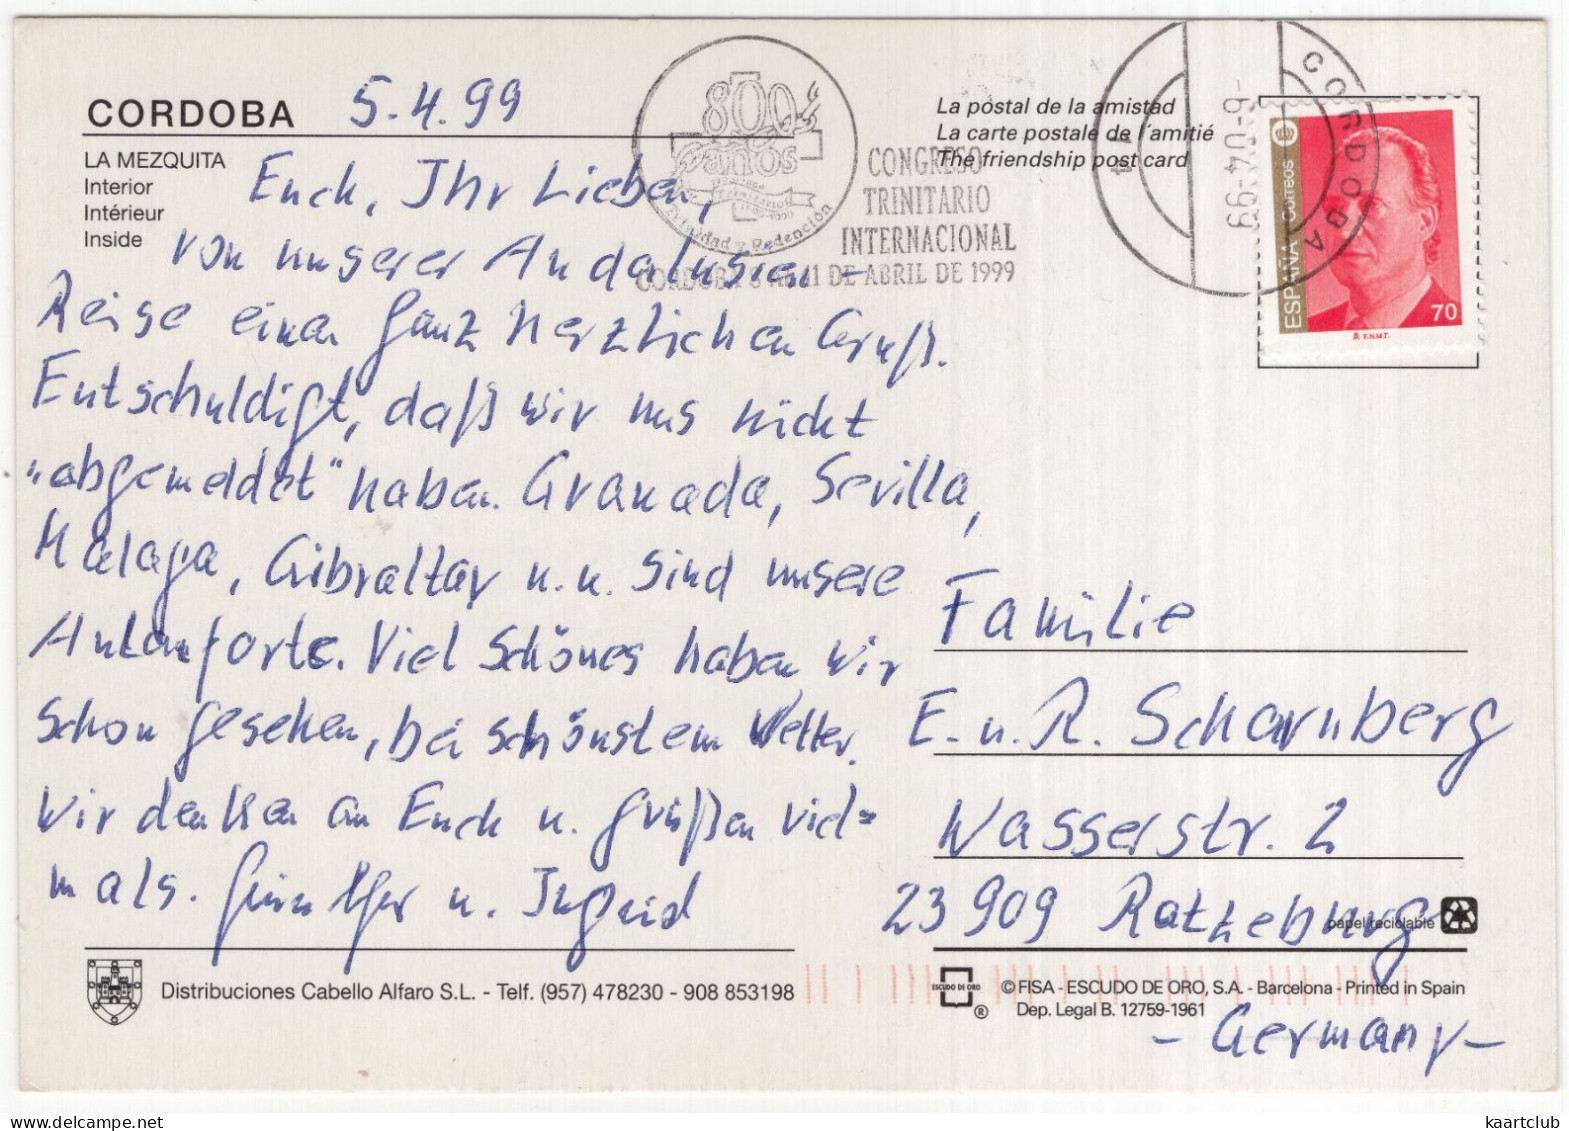 CORDOBA
5.4.99
LA MEZQUITA
Interior
Intérieur
Inside
Euch, Ihr Lieben,
von unserer Andalusien-
Reise einen ganz herzlichen Gruß.
Entschuldigt, daß wir uns nicht
"abgemeldet" haben. Granada, Sevilla,
Malaga, Gibraltar u.u. sind unsere
Anlaufорte. Viel Schönes haben wir
schon gesehen, bei schönstem Wetter.
Wir denken an Euch u. grüßen viel=
mals. Günther u. Ingrid
Distribuciones Cabello Alfaro S.L. - Telf. (957) 478230 - 908 853198
800
años
Trinidad y Redención
CONGRESO
TRINITARIO
INTERNACIONAL
CORDOBA 8 AL 11 DE ABRIL DE 1999
La postal de la amistad
La carte postale de l'amitié
The friendship post card
CORDOBA
-6-04-99
ESPAÑA Correos
70
F.N.M.T.
Familie
E. u. R. Scharnberg
Wasserstr. 2
23909 Ratzeburg
papel reciclable
ESCUDO DE ORO
®
© FISA - ESCUDO DE ORO, S.A. - Barcelona - Printed in Spain
Dep. Legal B. 12759-1961
- Germany -
kaartclub